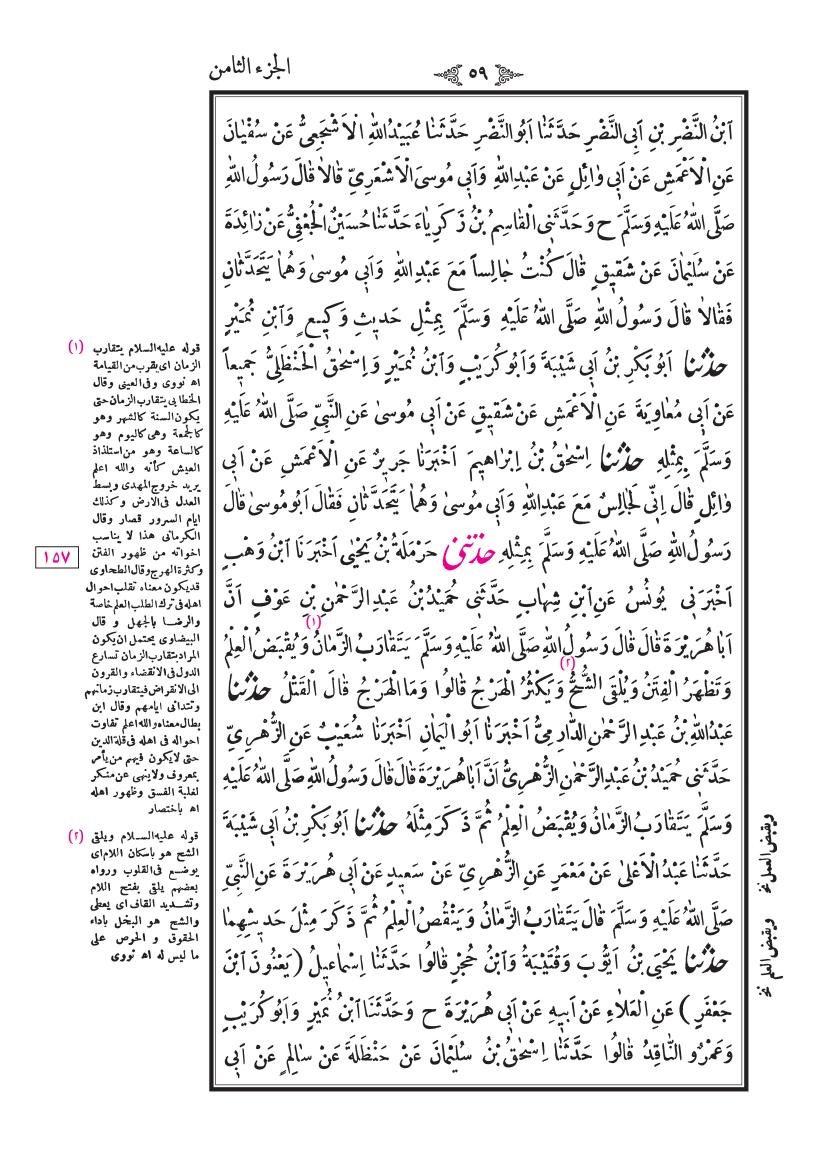 الجزء الثامن
٥٩
ابْنُ النَّضْرِ بْنِ اَبِى النَّضْرِ حَدَّثَنَا اَبُو النَّضْرِ حَدَّثَنَا عُبَيْدُ اللهِ الْاَشْجَعِىُّ عَنْ سُفْيَانَ
عَنِ الْاَعْمَشِ عَنْ اَبِى وَائِلٍ عَنْ عَبْدِاللهِ وَاَبِى مُوسَى الْاَشْعَرِىِّ قَالَا قَالَ رَسُولُ اللهِ
صَلَّى اللهُ عَلَيْهِ وَسَلَّمَ ح وَحَدَّثَنِى الْقَاسِمُ بْنُ زَكَرِيَّاءَ حَدَّثَنَا حُسَيْنٌ الْجُعْفِىُّ عَنْ زَائِدَةَ
عَنْ سُلَيْمَانَ عَنْ شَقِيقٍ قَالَ كُنْتُ جَالِساً مَعَ عَبْدِاللهِ وَاَبِى مُوسَى وَهُمَا يَتَحَدَّثَانِ
فَقَالَا قَالَ رَسُولُ اللهِ صَلَّى اللهُ عَلَيْهِ وَسَلَّمَ بِمِثْلِ حَديثِ وَكِيعٍ وَابْنِ نُمَيْرٍ
حدثنا اَبُو بَكْرِ بْنُ اَبِى شَيْبَةَ وَاَبُو كُرَيْبٍ وَابْنُ نُمَيْرٍ وَاِسْحٰقُ الْحَنْظَلِىُّ جَمِيعاً
عَنْ اَبِى مُعَاوِيَةَ عَنِ الْاَعْمَشِ عَنْ شَقِيقٍ عَنْ اَبِى مُوسَى عَنِ النَّبِىِّ صَلَّى اللهُ عَلَيْهِ
وَسَلَّمَ بِمِثْلِهِ حدثنا اِسْحٰقُ بْنُ اِبْرَاهِيمَ اَخْبَرَنَا جَرِيرٌ عَنِ الْاَعْمَشِ عَنْ اَبِى
وَائِلٍ قَالَ اِنِّى لَجَالِسٌ مَعَ عَبْدِاللهِ وَاَبِى مُوسَى وَهُمَا يَتَحَدَّثَانِ فَقَالَ اَبُومُوسَى قَالَ
رَسُولُ اللهِ صَلَّى اللهُ عَلَيْهِ وَسَلَّمَ بِمِثْلِهِ حدثنى حَرْمَلَةُ بْنُ يَحْيٰى اَخْبَرَنَا ابْنُ وَهْبٍ
اَخْبَرَنِى يُونُسُ عَنِ ابْنِ شِهَابٍ حَدَّثَنِى حُمَيْدُ بْنُ عَبْدِ الرَّحْمٰنِ بْنِ عَوْفٍ اَنَّ
اَبَا هُرَيْرَةَ قَالَ قَالَ رَسُولُ اللهِ صَلَّى اللهُ عَلَيْهِ وَسَلَّمَ يَتَقَارَبُ الزَّمَانُ (١) وَيُقْبَضُ الْعِلْمُ
وَتَظْهَرُ الْفِتَنُ وَيُلْقَى الشُّحُّ (٢) وَيَكْثُرُ الْهَرْجُ قَالُوا وَمَا الْهَرْجُ قَالَ الْقَتْلُ حدثنا
عَبْدُاللهِ بْنُ عَبْدِ الرَّحْمٰنِ الدَّارِمِىُّ اَخْبَرَنَا اَبُو الْيَمَانِ اَخْبَرَنَا شُعَيْبٌ عَنِ الزُّهْرِىِّ
حَدَّثَنِى حُمَيْدُ بْنُ عَبْدِ الرَّحْمٰنِ الزُّهْرِىُّ اَنَّ اَبَا هُرَيْرَةَ قَالَ قَالَ رَسُولُ اللهِ صَلَّى اللهُ عَلَيْهِ
وَسَلَّمَ يَتَقَارَبُ الزَّمَانُ وَيُقْبَضُ الْعِلْمُ ثُمَّ ذَكَرَ مِثْلَهُ حدثنا اَبُو بَكْرِ بْنُ اَبِى شَيْبَةَ
حَدَّثَنَا عَبْدُ الْاَعْلَى عَنْ مَعْمَرٍ عَنِ الزُّهْرِىِّ عَنْ سَعِيدٍ عَنْ اَبِى هُرَيْرَةَ عَنِ النَّبِىِّ
صَلَّى اللهُ عَلَيْهِ وَسَلَّمَ قَالَ يَتَقَارَبُ الزَّمَانُ وَيَنْقُصُ الْعِلْمُ ثُمَّ ذَكَرَ مِثْلَ حَديثِهِمَا
حدثنا يَحْيَى بْنُ اَيُّوبَ وَقُتَيْبَةُ وَابْنُ حُجْرٍ قَالُوا حَدَّثَنَا اِسْمَاعِيلُ (يَعْنُونَ ابْنَ
جَعْفَرٍ) عَنِ الْعَلَاءِ عَنْ اَبِيهِ عَنْ اَبِى هُرَيْرَةَ ح وَحَدَّثَنَا ابْنُ نُمَيْرٍ وَاَبُو كُرَيْبٍ
وَعَمْرٌو النَّاقِدُ قَالُوا حَدَّثَنَا اِسْحٰقُ بْنُ سُلَيْمَانَ عَنْ حَنْظَلَةَ عَنْ سَالِمٍ عَنْ اَبِى
(١) قوله عليه السلام يتقارب
الزمان اى يقرب من القيامة
اه نووى وفى العينى وقال
الخطابى يتقارب الزمان حتى
يكون السنة كالشهر وهو
كالجمعة وهى كاليوم وهو
كالساعة وهو من استلذاذ
العيش كأنه والله اعلم
يريد خروج المهدى وبسط
العدل فى الارض وكذلك
ايام السرور قصار وقال
الكرمانى هذا لا يناسب
اخواته من ظهور الفتن
وكثرة الهرج وقال الطحاوى
قد يكون معناه تقلب احوال
اهله فى ترك الطلب العلم خاصة
والرضا بالجهل و قال
البيضاوى يحتمل ان يكون
المراد بتقارب الزمان تسارع
الدول فى الانقضاء والقرون
الى الانقراض فيتقارب زمانهم
وتتدانى ايامهم وقال ابن
بطال معناه والله اعلم تفاوت
احواله فى اهله فى قلة الدين
حتى لا يكون فيهم من يأمر
بمعروف ولا ينهى عن منكر
لغلبة الفسق وظهور اهله
اه باختصار
(٢) قوله عليه السلام ويلقى
الشح هو باسكان اللام اى
يوضع فى القلوب ورواه
بعضهم يلقى بفتح اللام
وتشديد القاف اى يعطى
والشح هو البخل باداء
الحقوق و الحرص على
ما ليس له اه نووى
١٥٧
ويقبض العمل نخ
ويقبض العلم نخ